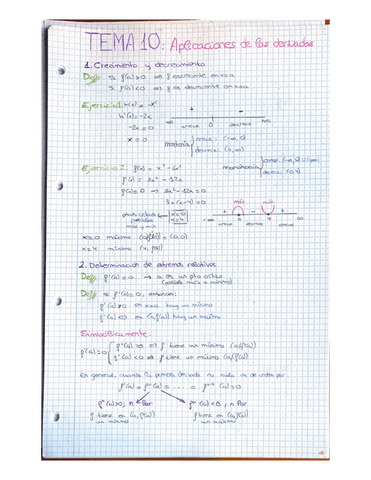 TEMA 10: Aplicaciones de las derivadas
1. Crecimiento y decrecimiento
Def// Si f'(a)>0 ⇒ f creciente en x=a
Si f'(a)<0 ⇒ f es decreciente en x=a
Ejercicio 1 h(x) = -x²
h'(x) = -2x
-2x = 0
x = 0
+ -
-∞ crece 0 decrece +∞
monotonía crece: (-∞, 0)
decrece: (0, ∞)
Ejercicio 2 f(x) = x³ - 6x²
f'(x) = 3x² - 12x
f'(x) = 0 ⇒ 3x² - 12x = 0
monotonía
x=0
x=4
máx mín
+ - +
-∞ crece 0 decrece 4 crece
x=0 máximo (0, f(0)) = (0,0)
x=4 mínimo (4, f(4))
2. Determinación de extremos relativos
Def// f'(a) = 0 → a es un pto crítico
(posible máx o mínimo)
Def// Si f'(a)=0, entonces:
f''(a)>0 en x=a hay un mínimo
f''(a)<0 en (a, f(a)) hay un máximo
Simbólicamente:
f'(a)=0 f''(a)>0 ⇒ f tiene un mínimo (a, f(a))
f''(a)<0 ⇒ f tiene un máximo (a, f(a))
En general, cuando la primera derivada no nula es de orden par:
f'(a) = f''(a) = ..... = fⁿ⁻¹(a) = 0
fⁿ(a)>0, n Par fⁿ(a)<0, n Par
f tiene en (a, f(a)) f tiene en (a, f(a))
un mínimo un máximo